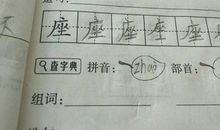 座 座 座 座 座
查字典 拼音: zhuo 部首:
组词: